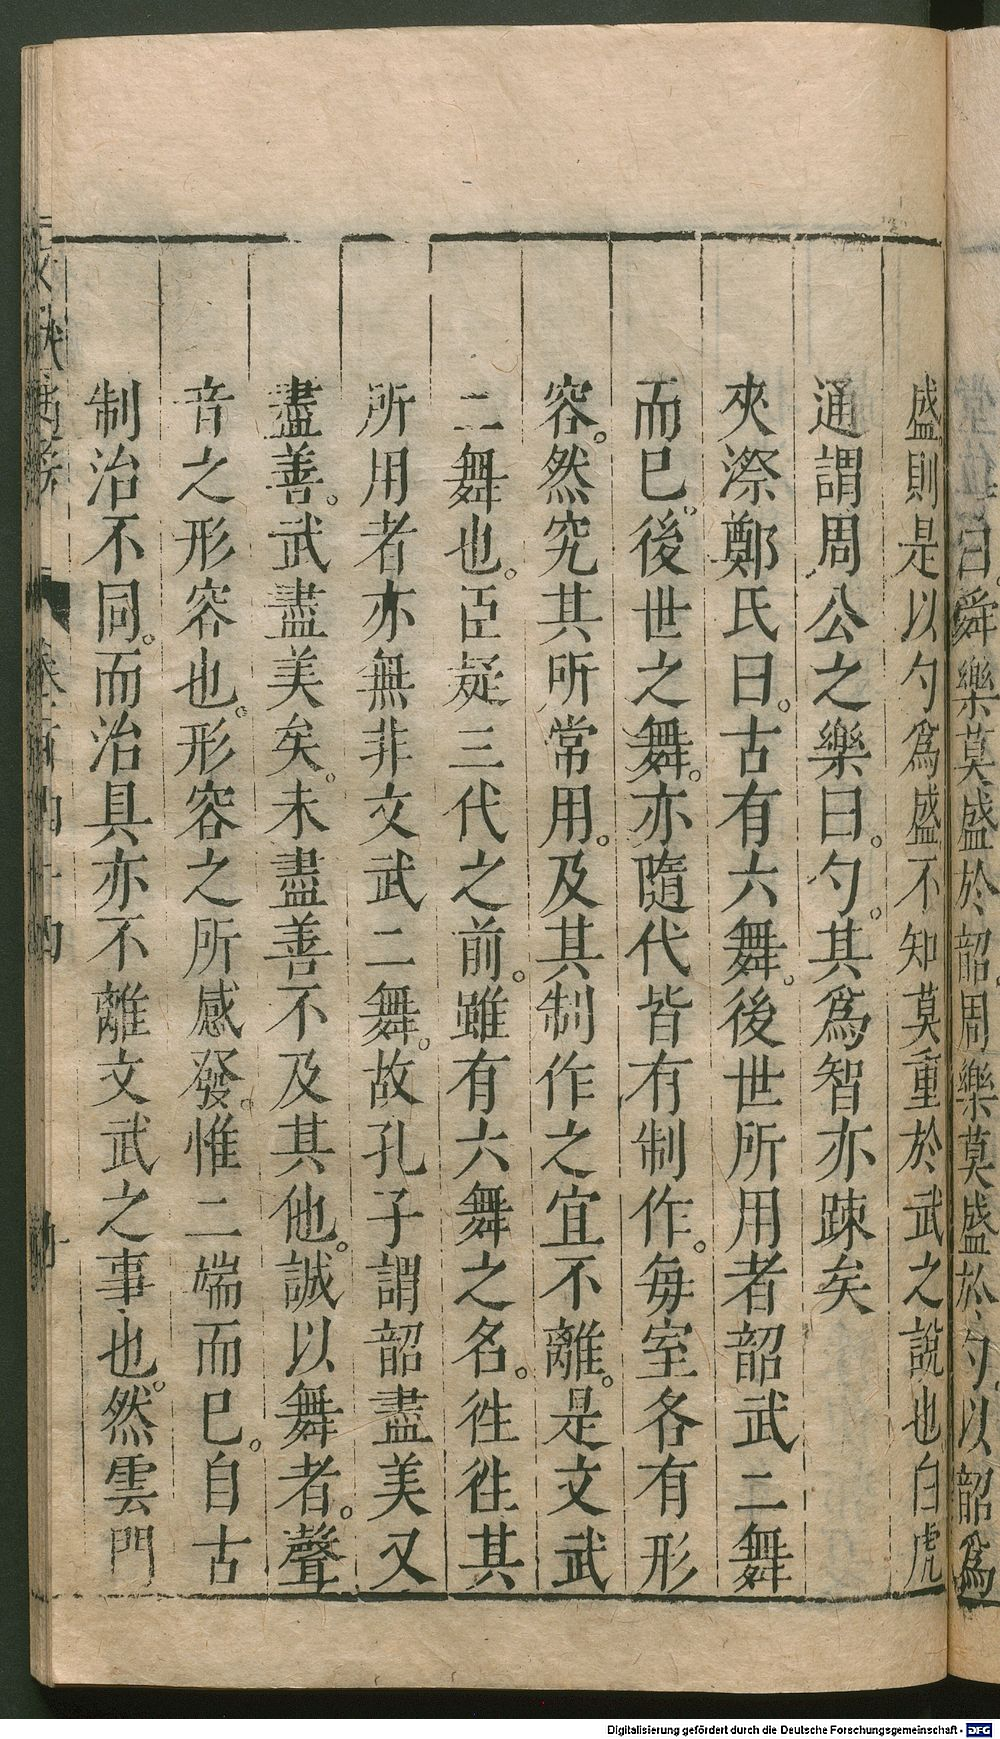 堂位曰。舜樂莫盛於韶。周樂莫盛於勺。以韶爲
盛。則是以勺爲盛不知莫重於武之說也白虎
通謂周公之樂曰。勺。其爲智亦踈矣
夾漈鄭氏曰。古有六舞。後世所用者韶武二舞
而巳。後世之舞。亦隨代皆有制作。毎室各有形
容。然究其所常用。及其制作之宜不離。是文武
二舞也。臣疑三代之前。雖有六舞之名。徃徃其
所用者亦無非文武二舞。故孔子謂韶盡美又
盡善。武盡美矣。未盡善不及其他。誠以舞者。聲
音之形容也。形容之所感發。惟二端而巳。自古
制治不同。而治具亦不離文武之事也。然雲門
文獻通考
卷百四十四
Digitalisierung gefördert durch die Deutsche Forschungsgemeinschaft - DFG